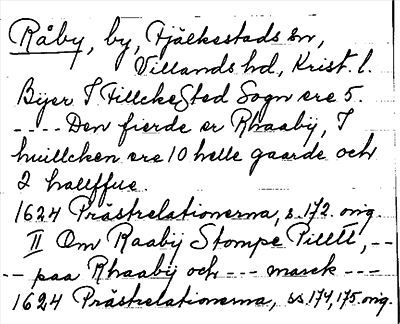 Råby, by, Fjälkestads sn,
Villands hd, Krist. l.
Byer I FillckeSted Sogn ere 5.
---- Den fierde er Rhaabÿ, I
huillcken ere 10 helle gaarde och
2 hallffue.
1624 Prästrelationerna, s. 172. orig.
II Om Raabÿ Stompe Pilltt, --
-- paa Rhaabÿ och --- marck ---
1624 Prästrelationerna, ss 174, 175. orig.